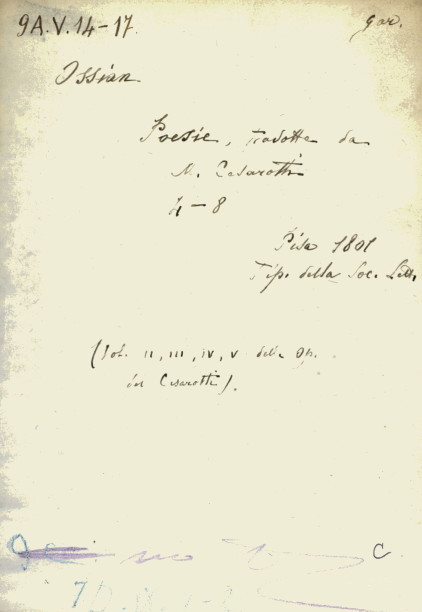 9A.V.14-17.
gar.
Ossian
Poesie, tradotte da
M. Cesarotti
4-8
Pisa 1801
Tip. della Soc. Lett.
(Vol. II, III, IV, V delle Op.
del Cesarotti).
C